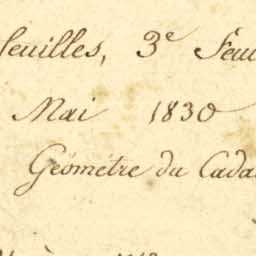 feuilles, 3e Feui
Mai 1830
Géometre du Cada